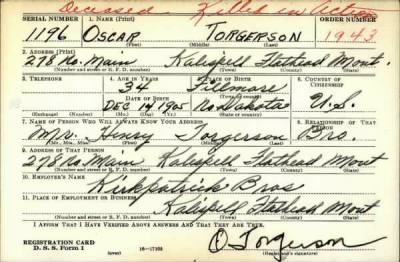 Deceased Killed in Action
SERIAL NUMBER 1. NAME (Print) ORDER NUMBER
1196 OSCAR TORGERSON 1943
(First) (Middle) (Last)
2. ADDRESS (Print)
278 No. Main Kalispell Flathead Mont.
(Number and street or R. F. D. number) (Town) (County) (State)
3. TELEPHONE 4. AGE IN YEARS 5. PLACE OF BIRTH 6. COUNTRY OF CITIZENSHIP
34 Fillmore
DATE OF BIRTH (Town or county)
DEC 14 1905 No. Dakota U.S.
(Exchange) (Number) (Mo.) (Day) (Yr.) (State or country)
7. NAME OF PERSON WHO WILL ALWAYS KNOW YOUR ADDRESS 8. RELATIONSHIP OF THAT PERSON
Mr. Henry Torgerson Bro.
(Mr., Mrs., Miss) (First) (Middle) (Last)
9. ADDRESS OF THAT PERSON
278 No. Main Kalispell Flathead Mont
(Number and street or R. F. D. number) (Town) (County) (State)
10. EMPLOYER'S NAME
Kirkpatrick Bros
11. PLACE OF EMPLOYMENT OR BUSINESS
Kalispell Flathead Mont
(Number and street or R. F. D. number) (Town) (County) (State)
I AFFIRM THAT I HAVE VERIFIED ABOVE ANSWERS AND THAT THEY ARE TRUE.
O Torgerson
REGISTRATION CARD
D. S. S. Form 1 (over) 16-17105 (Registrant's signature)